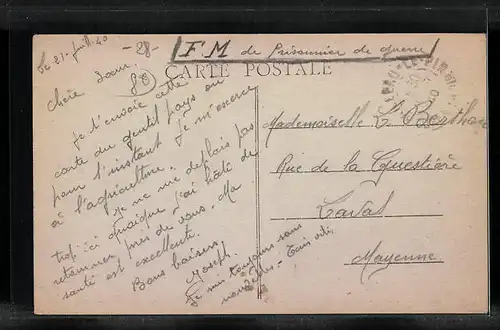 Le 21 Juill. 40
- 28 -
F M de Prisonnier de guerre
CARTE POSTALE
Chère
Je t'envoie cette
carte du gentil pays ou
pour l'instant je m'exerce
à l'agriculture.
Je ne me déplais pas
trop ici quoique j'ai hâte de
retourner près de vous. Ma
santé est excellente.
Bons baisers
Joseph.
Je suis toujours sans
nouvelles
Mademoiselle L. Berthon
Rue de la Questière
Laval
Mayenne